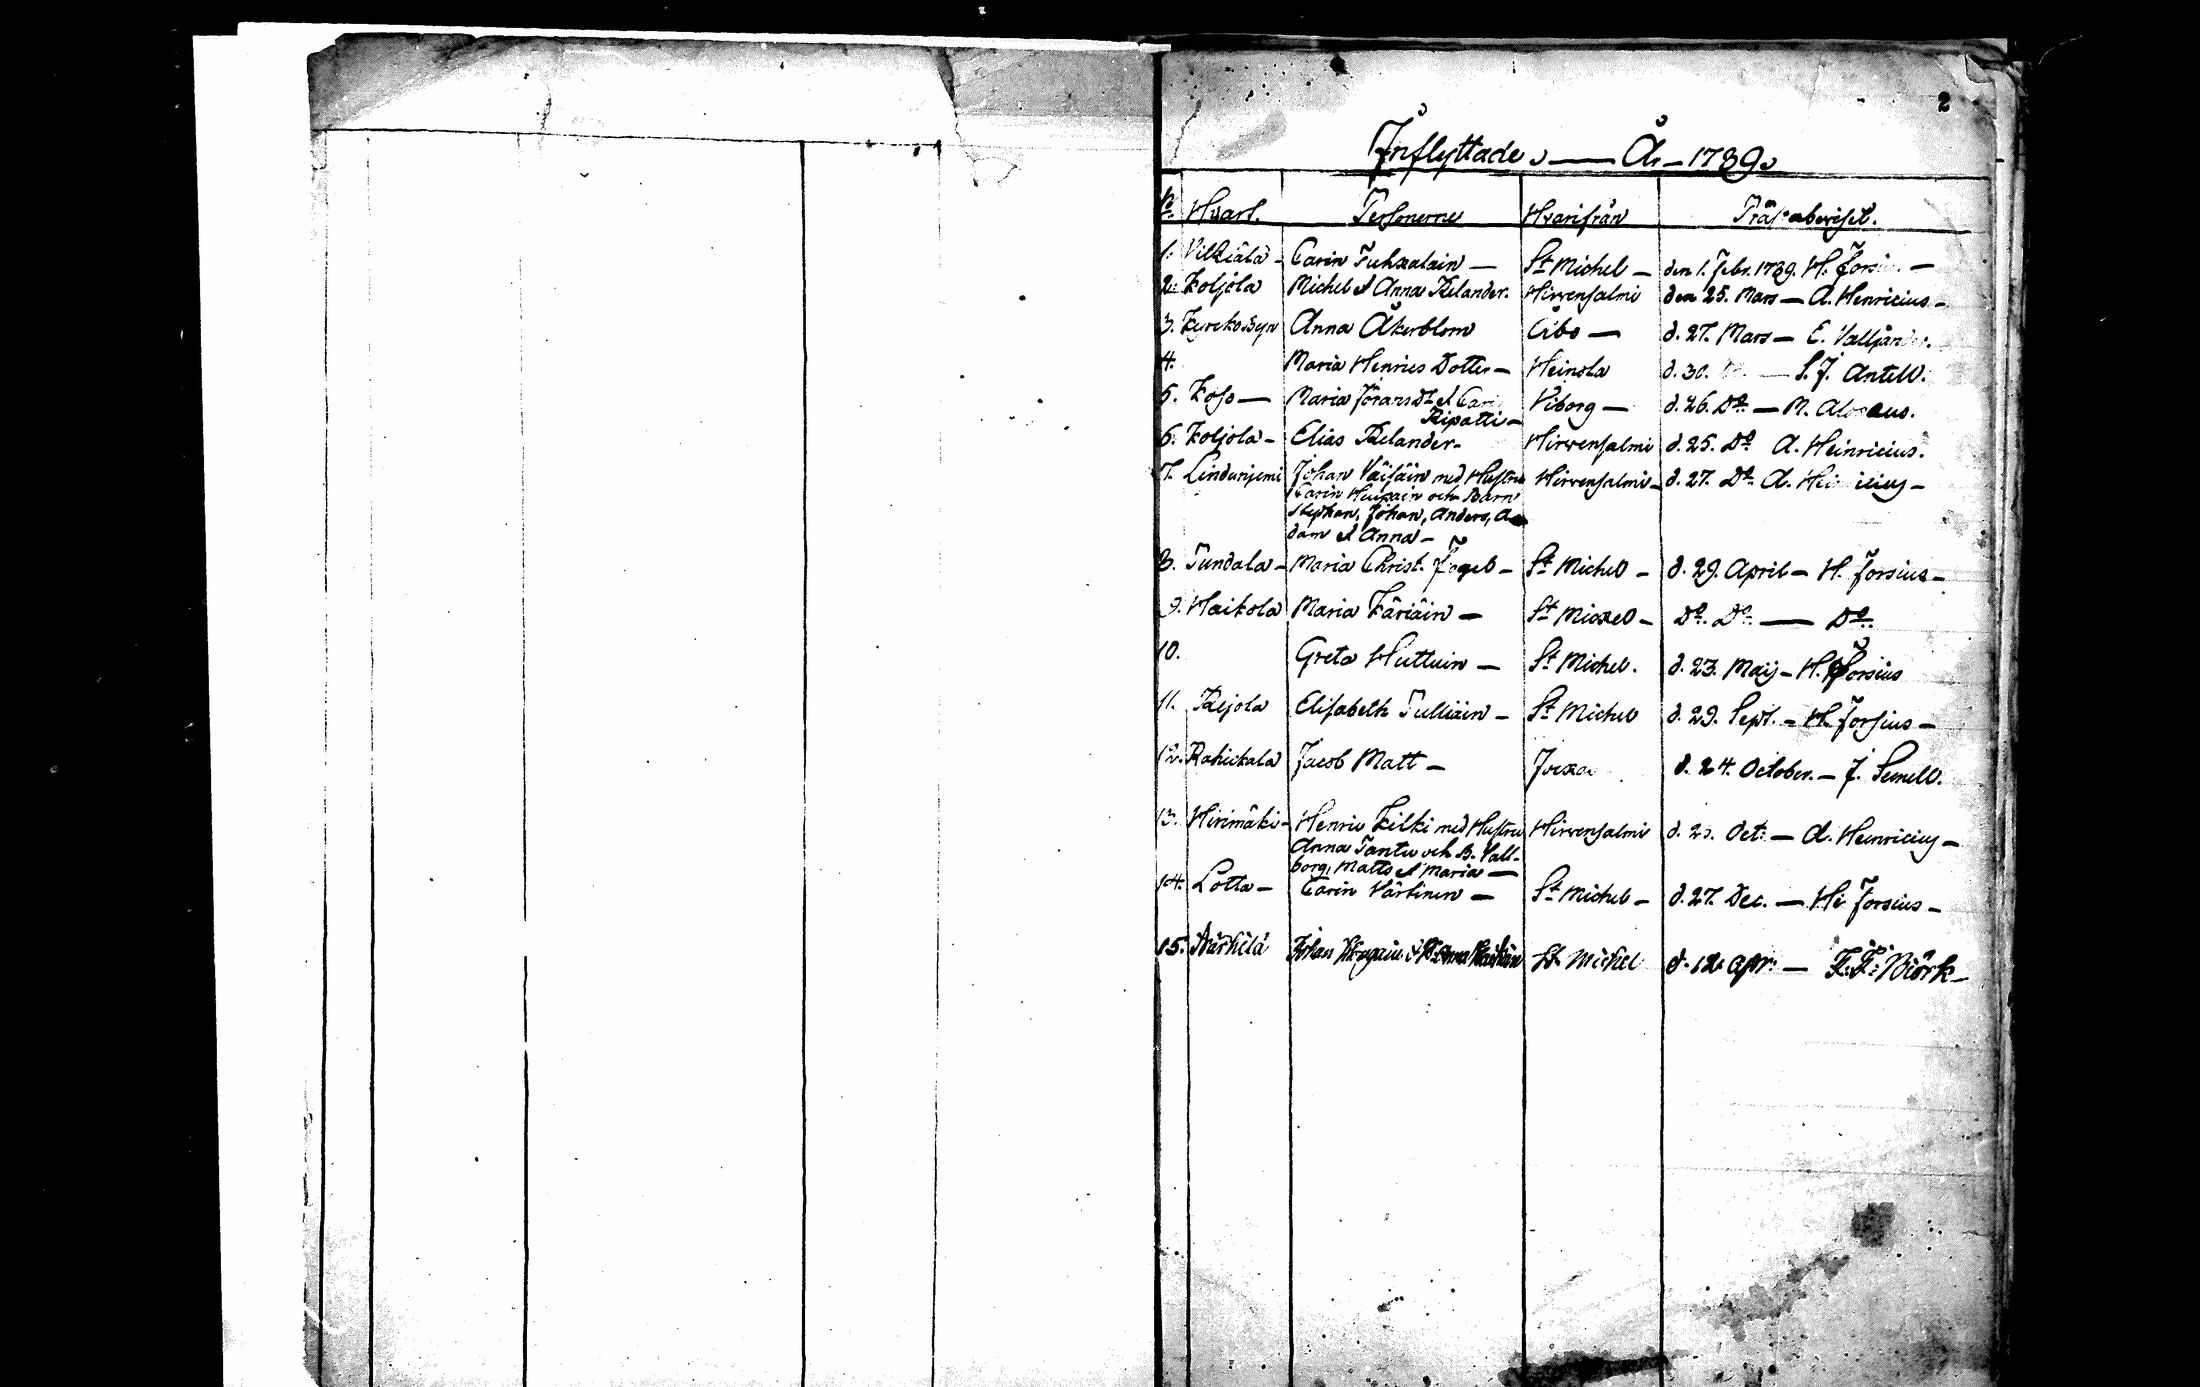 2
Inflyttade. — År 1789.
No. Hvart. Personerne Hvarifrån Prästabeviset.
1. Vilkiäla - Carin Tuhkalain — St Michel - den 1. Febr. 1789. H. Forsius —
2. Koljola Michel et Anna Kelander. Hirvensalmi den 25. Mars — A. Henricius -
3. Kyrckobyn Anna Åkerblom Åbo — d. 27. Mars — E.
4. Maria Henrics Dotter — Heinola d. 30. — S. J. Antell.
5. Koso — Maria Jörans Dr et Carin Viborg — d. 26. Do — M. Alopaeus.
Ripatti -
6. Koljola - Elias Kelander - Hirvensalmi d. 25. Do A. Heinricius.
7. Lindunjemi Johan Väisäin med Hustru Hirvensalmi - d. 27. Do A. Heinricius -
Carin och Barn
Stephan, Johan, Anders, A-
dam et Anna -
8. Pundala - Maria Christ. Fogel - St Michel - d. 29. April - H. Forsius -
9. Haikola Maria Käriäin — St Mickel - Do. Do. — Do.
10. Greta Huttuin — St Michel. d. 23. Maij - H. Forsius
11. Reijola Elisabeth Pulliäin - St Michel d. 29. Sept. - H. Forsius -
12. Rahickala Jacob Matt - Jocka d. 24. October. - J. Semell.
13. Hirimäki - Henric Kilki med Hustru Hirvensalmi d. Oct: — A. Heinricius -
Anna Pantu och B. Vall-
borg, Matts et Maria —
14. Lotta - Carin Härkinen — St Michel - d. 27. Dec. — H: Forsius -
15. Närhilä Johan & H. Anna St. Michel d. 12 apr: — F. F: Björk -